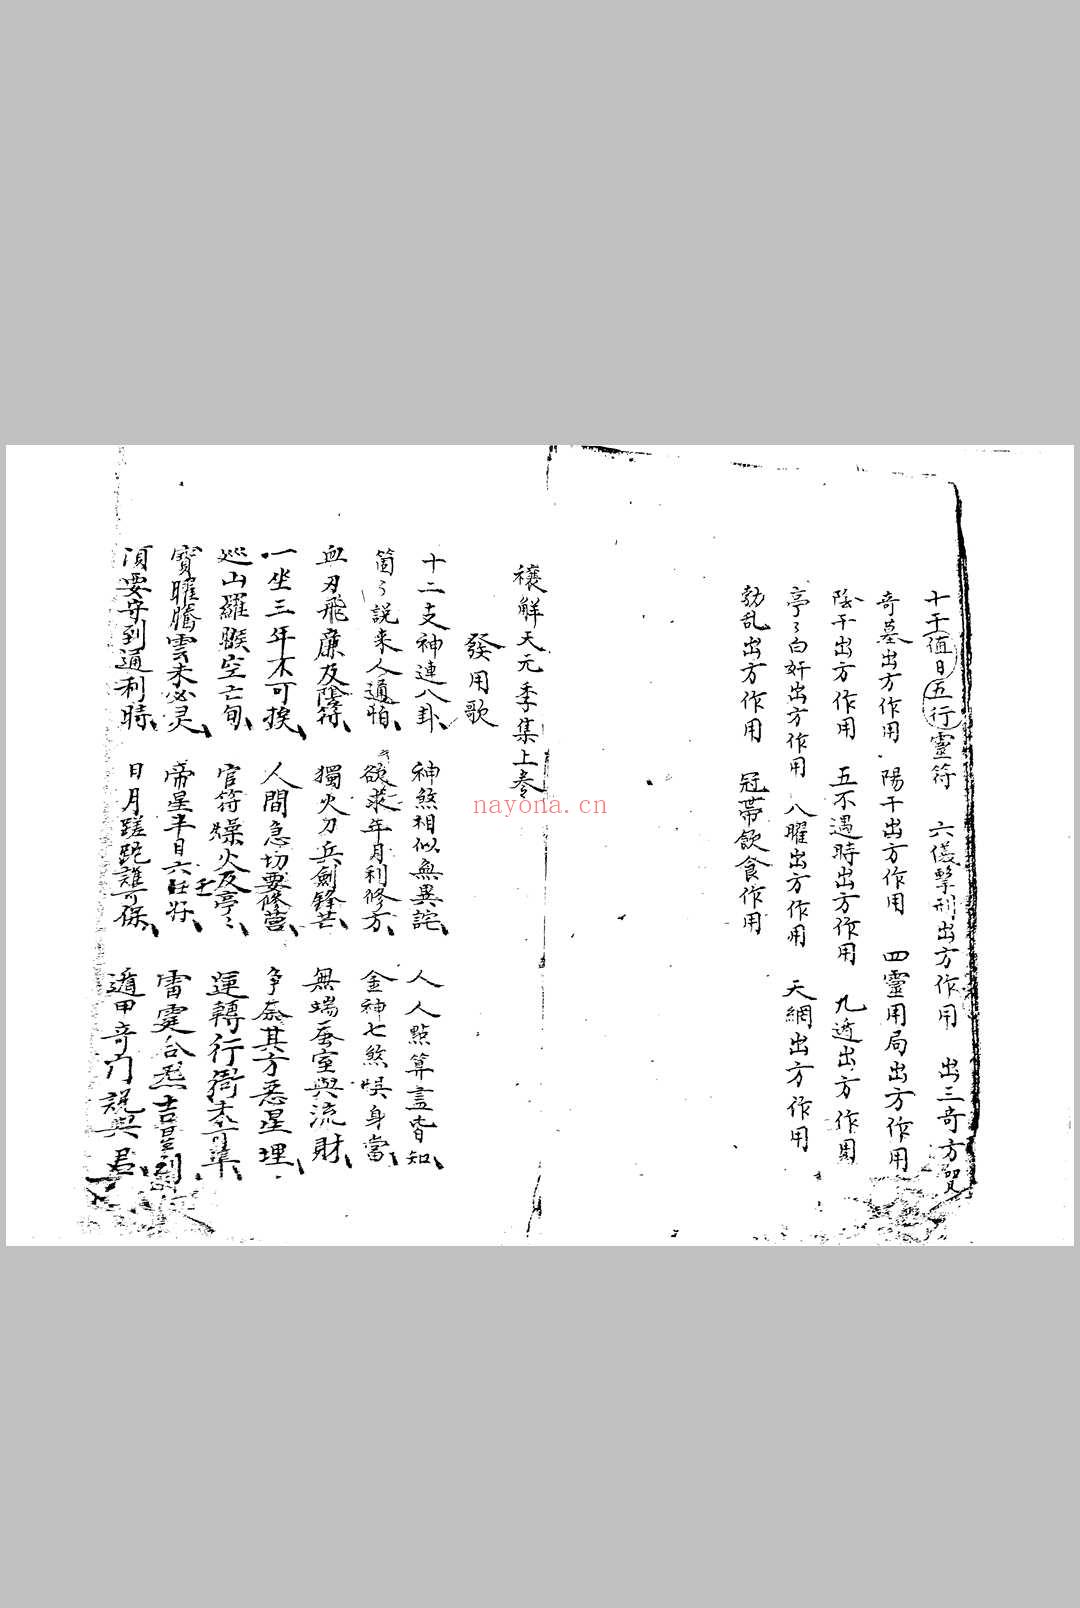 十干值日五行靈符 六儀擊刑出方作用 出三奇方
奇墓出方作用 陽干出方作用 四靈用局出方作用
陰干出方作用 五不遇時出方作用 九遁出方作用
亭〻白奸出方作用 八曜出方作用 天網出方作用
勃乱出方作用 冠帯飲食作用
禳解天元季集上卷
發用歌
十二支神連八卦 神煞相似無異詫 人人點算盡皆知
箇〻説来人通怕 欲求年月利修方 金神七煞惧身當
血刃飛廉及陰符 獨火刀兵劍鋒芒 無端蚕室與流財
一坐三年不可挨 人間急切要修营 争奈其方悪星理
巡山羅睺空亡甸 官符燥火及亭〻 運轉行衙未可準
寳曜騰雲未必灵 帝星半日六壬好 雷霆合炁吉星到
須要守到通利時 日月蹉跎誰可保 遁甲奇门説與君
nayona.cn